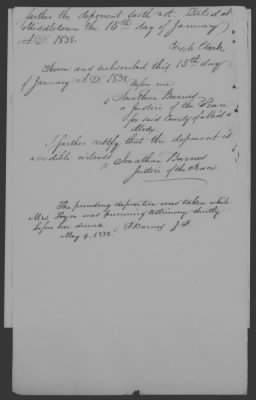 further the deponent saith not. Dated at
Middletown the 15th day of January
A.D. 1838.
Enoch Clark
Sworn and subscribed this 15th day
of January A.D. 1838
Before me
Jonathan Barnes
a Justice of the Peace
for said County of
I further certify that the deponent is
a credible witness
Jonathan Barnes
Justice of the Peace
The preceding deposition was taken while
Mrs. was testimony shortly
before her
May 4.